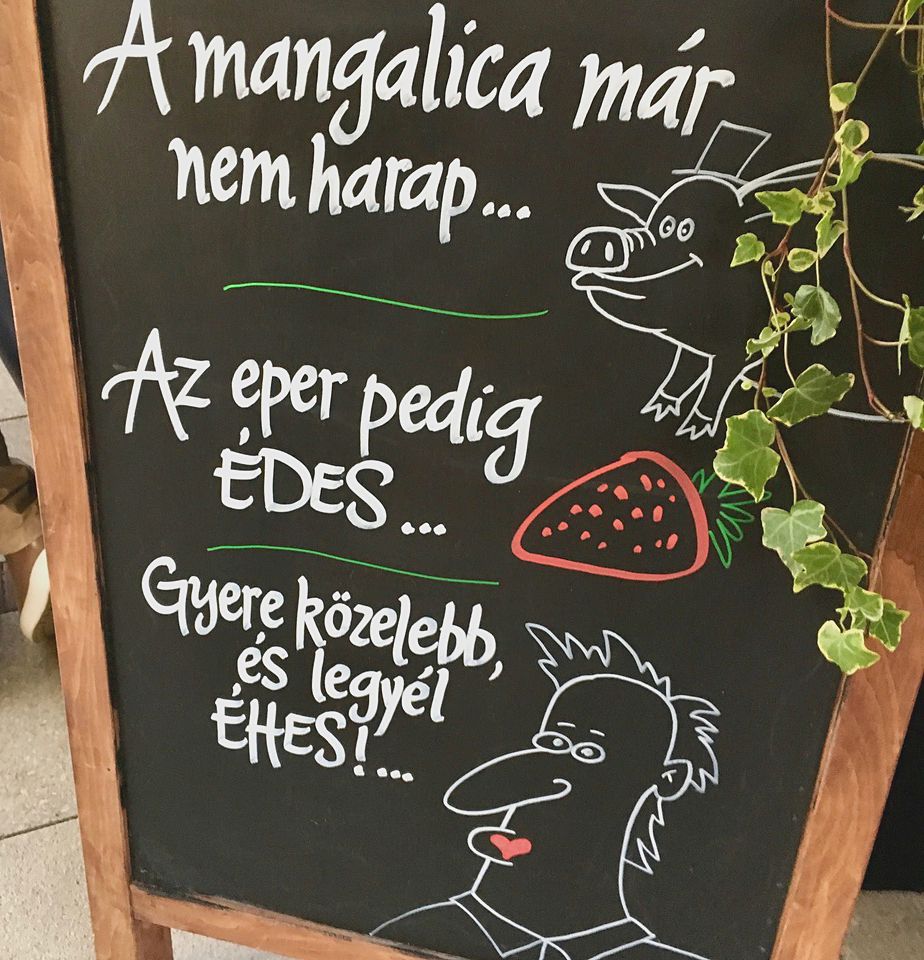 A mangalica már
nem harap...
Az eper pedig
ÉDES...
Gyere közelebb,
és legyél
ÉHES!...